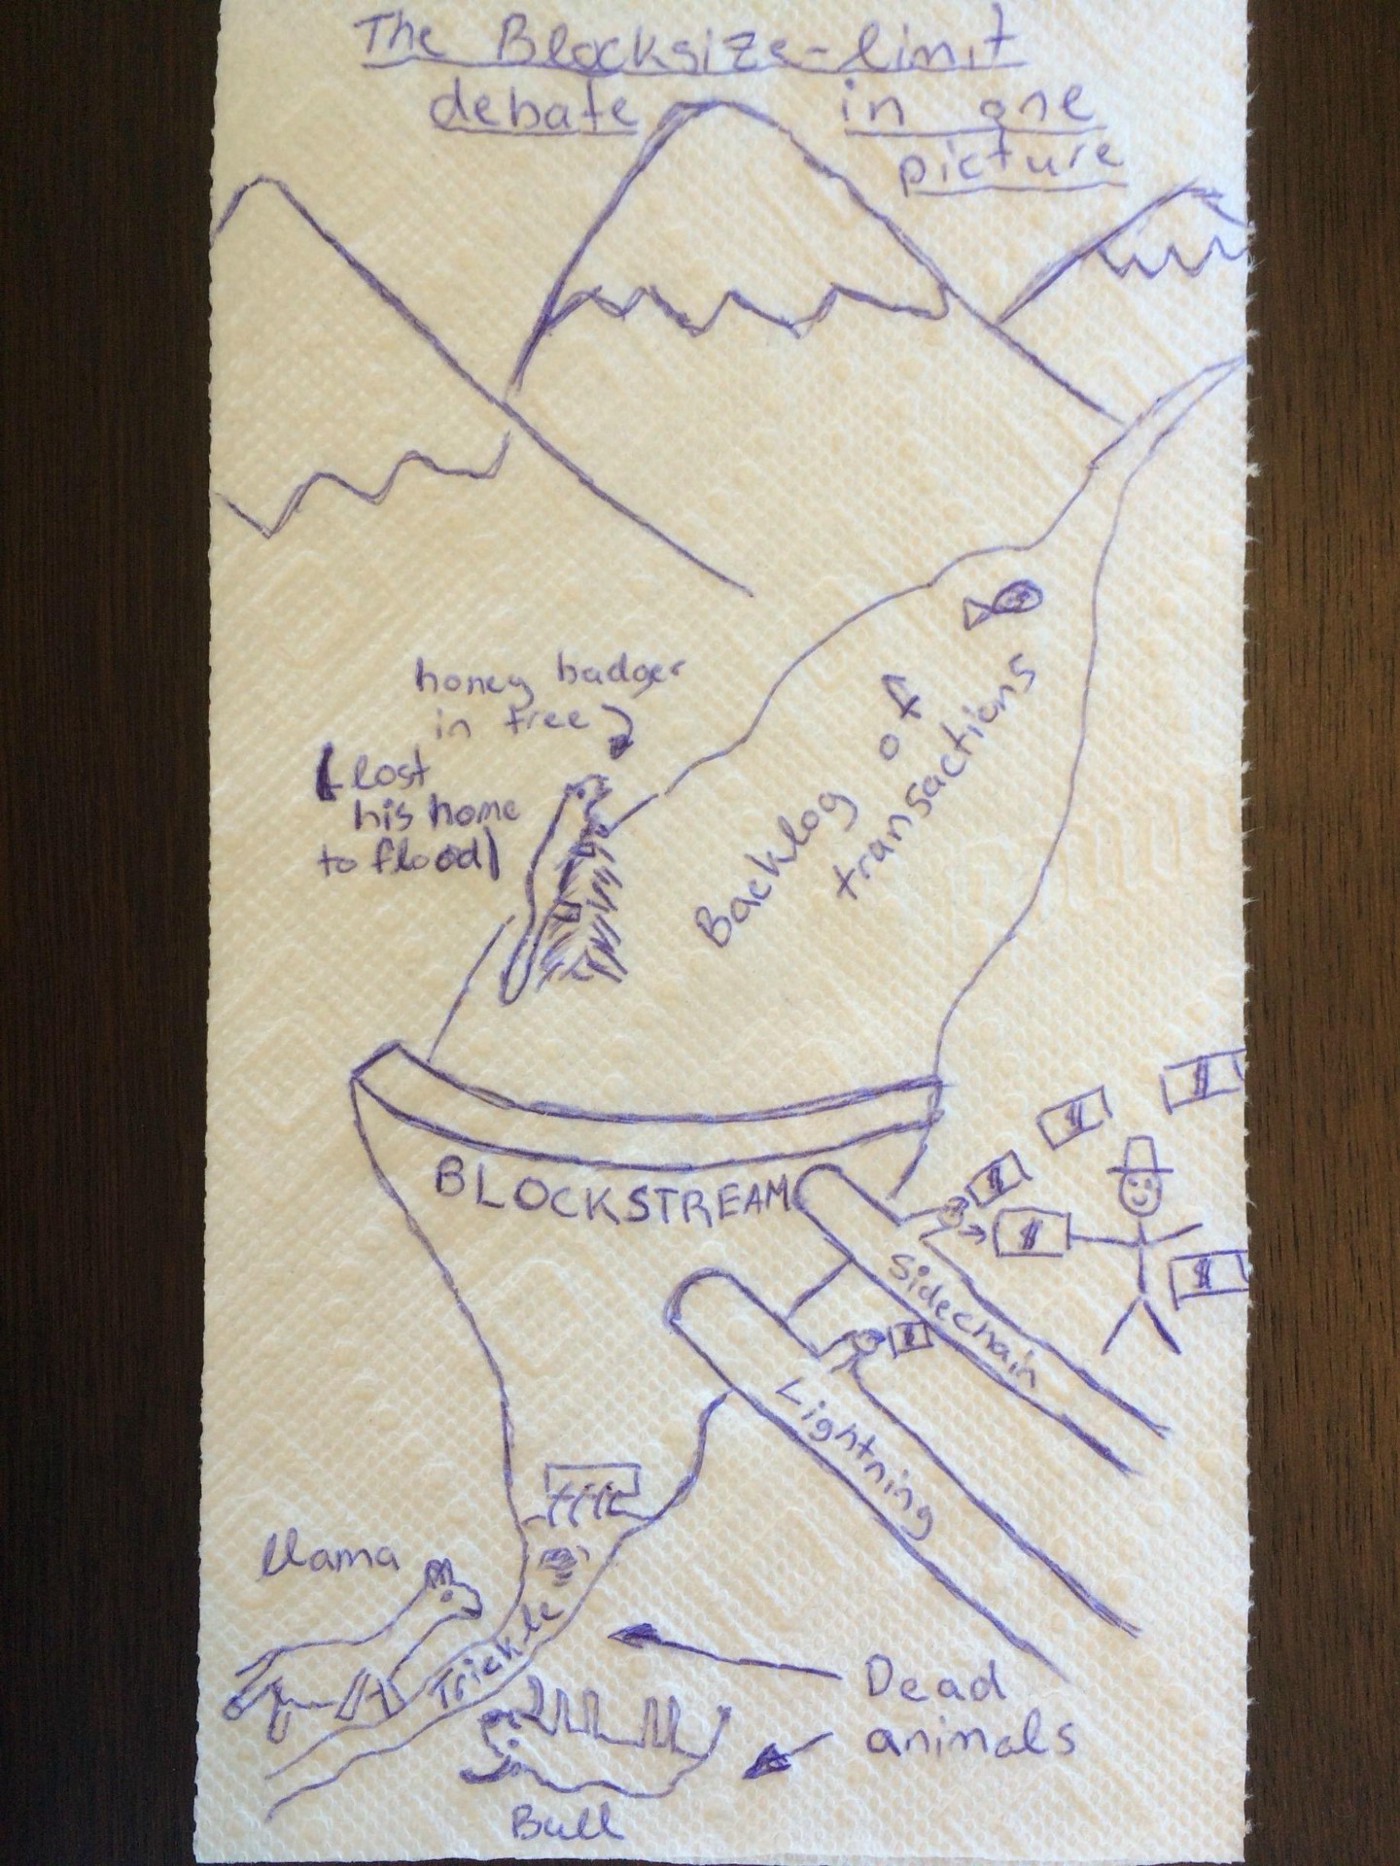 The Blocksize-limit
debate in one
picture
honey badger
in tree
(lost
his home
to flood)
Backlog of
transactions
BLOCKSTREAM
$
$
$
$
$
Sidechain
$
Lightning
llama
Trickle
Dead
animals
Bull